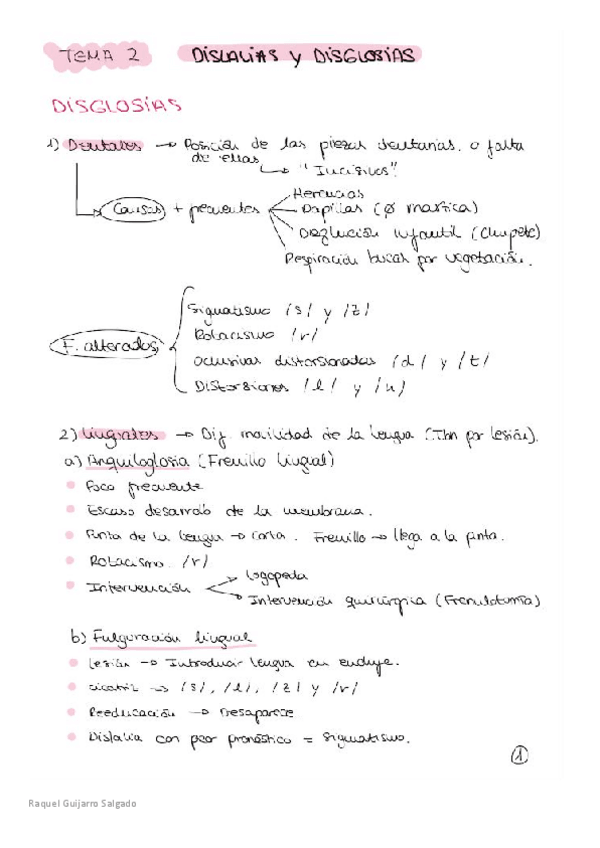 TEMA 2 DISLALIAS Y DISGLOSIAS
DISGLOSIAS
1) Dentales → Posición de las piezas dentarias. o falta
de ellas
↳ "Incisivos".
Causas + frecuentes
Herencias
Papillas (Ø mastica)
Deglución infantil (Chupete)
Respiración bucal por vegetación.
F. alterados
Sigmatismo /s/ y /z/
Rotacismo /r/
oclusivas distorsionadas /d/ y /t/
Distorsiones /l/ y /n/
2) Linguales → Dif. movilidad de la lengua (Tbn por lesión).
a) Anquiloglosia (Frenillo lingual)
• Poco frecuente
• Escaso desarrollo de la membrana.
• Punta de la lengua → Corta. Frenillo → llega a la punta.
• Rotacismo. /r/
• Intervención
Logopeda
Intervención quirúrgica (Frenulotomía)
b) Fulguración lingual
• Lesión → Introducir lengua en enchufe.
• cicatriz → /s/, /l/, /z/ y /r/
• Reeducación → Desaparece
• Dislalia con peor pronóstico = Sigmatismo.
1
Raquel Guijarro Salgado